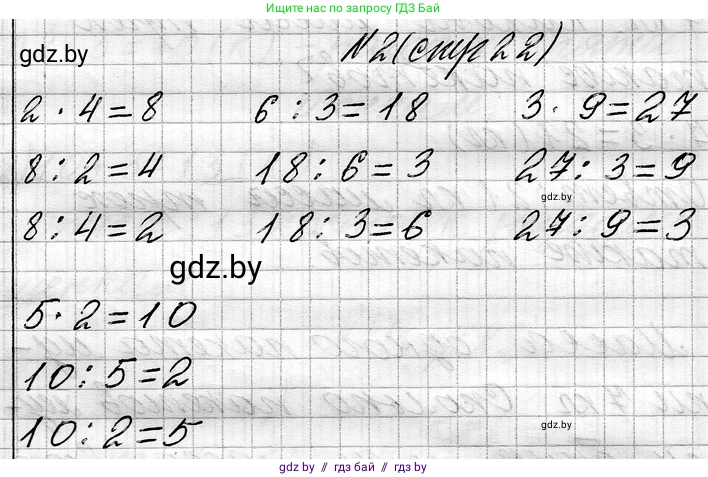 Ищите нас по запросу ГДЗ Бай
gdz.by
№2(стр22)
2 · 4 = 8 6 : 3 = 18 3 · 9 = 27
8 : 2 = 4 18 : 6 = 3 27 : 3 = 9
gdz.by
8 : 4 = 2 18 : 3 = 6 27 : 9 = 3
gdz.by
5 · 2 = 10
10 : 5 = 2
gdz.by
10 : 2 = 5
gdz.by // гдз бай // gdz.by